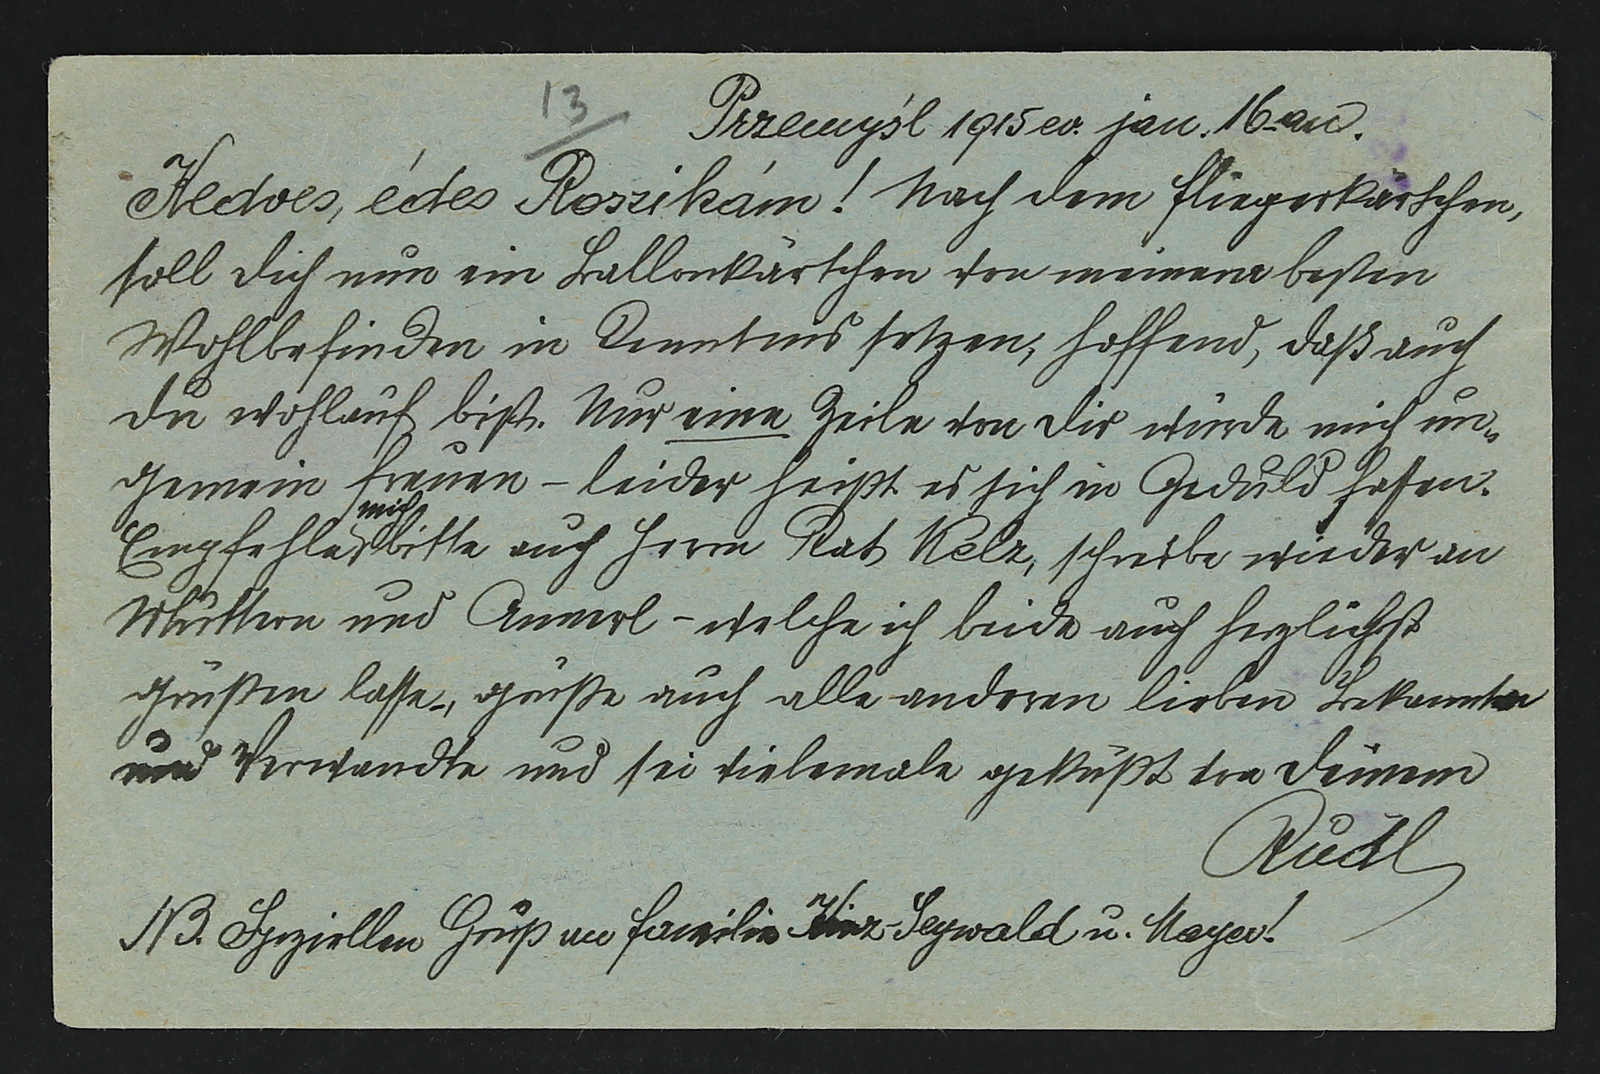 13
Przemyśl 1915 év. jan. 16-án.
Kedves, édes Roszikám! Nach dem Fliegerkärtchen,
soll Dich nun ein Ballonkärtchen von meinem besten
Wohlbefinden in Kenntnis setzen, hoffend, daß auch
Du wohlauf bist. Nur eine Zeile von Dir würde mich un-
gemein freuen - leider heißt es sich in Geduld fassen.
Empfehle mich bitte auch Herrn Rat Kelz, schreibe wieder an
Muttern und Annerl - welche ich beide auch herzlichst
grüßen lasse -, grüße auch alle anderen lieben Bekannten
und Verwandte und sei vielemale geküßt von Deinem
Rudl
NB. Speziellen Gruß an Familie Seywald u. Mayer!